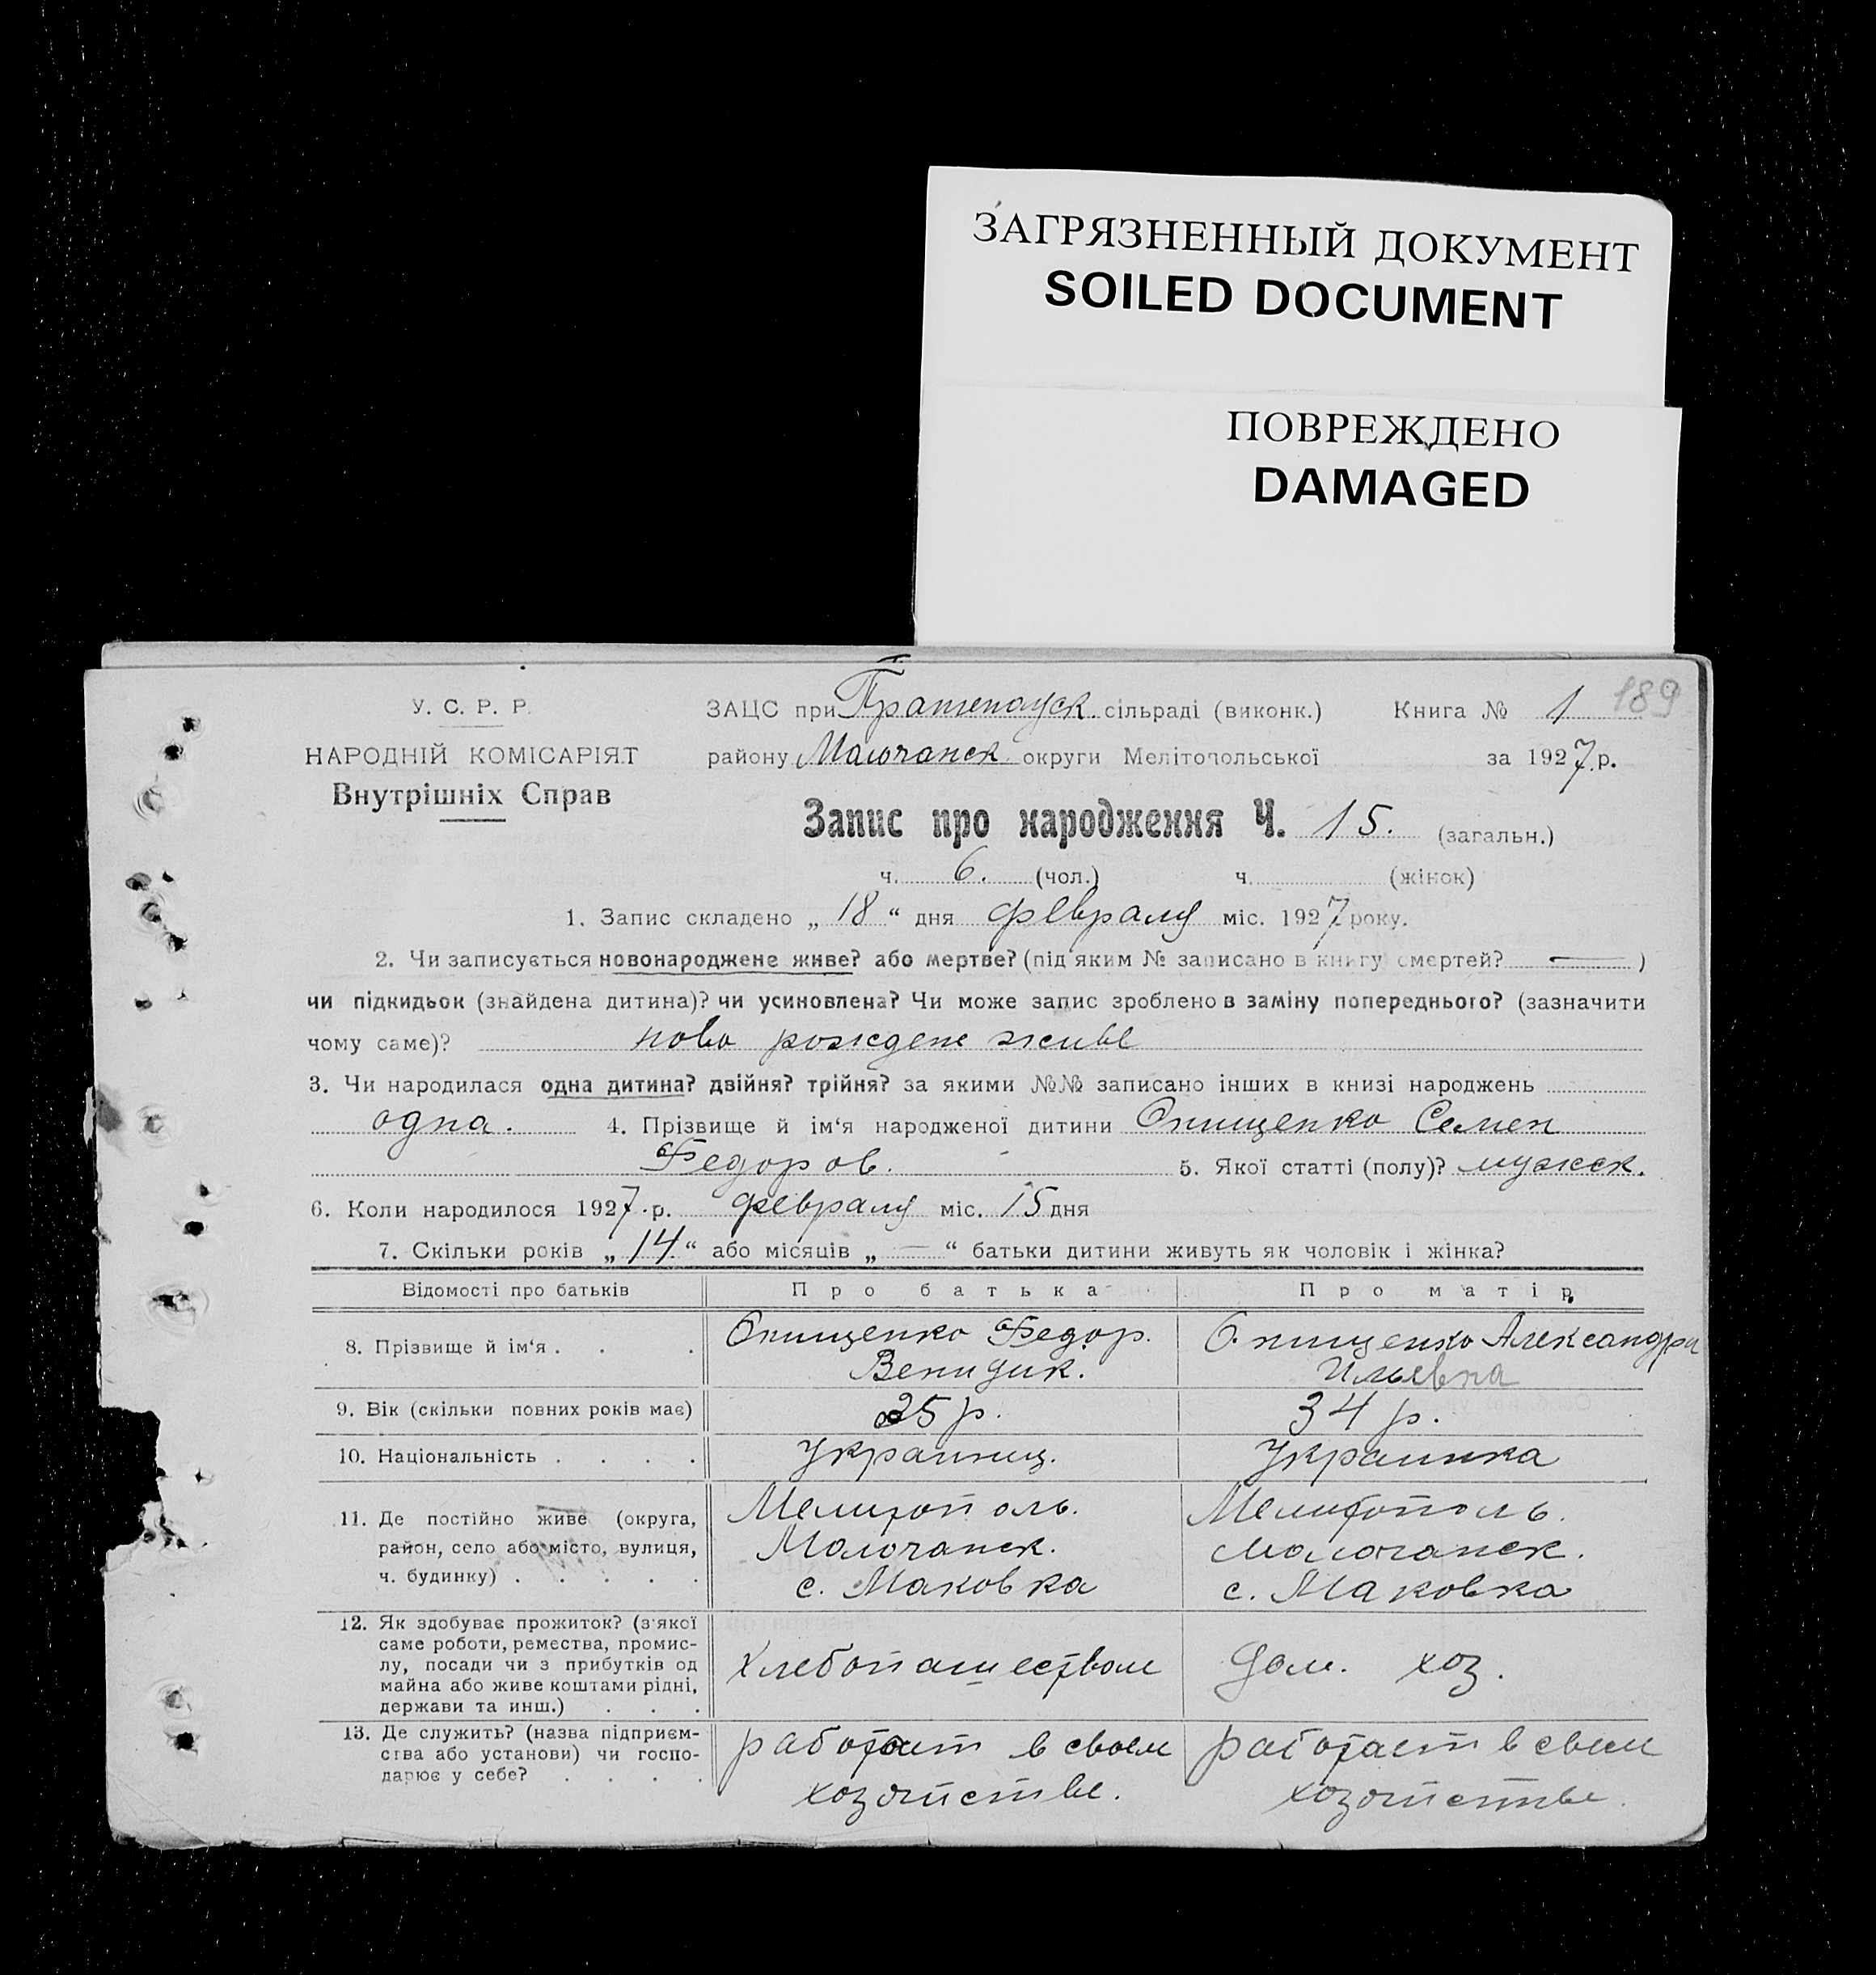 ЗАГРЯЗНЕННЫЙ ДОКУМЕНТ
SOILED DOCUMENT
ПОВРЕЖДЕНО
DAMAGED
189
У. С. Р. Р.
НАРОДНІЙ КОМІСАРІЯТ
Внутрішніх Справ
ЗАЦС при сільраді (виконк.) Книга № 1
району Молочанск округи Мелітопольської за 1927 р.
Запис про народження Ч. 15. (загальн.)
ч. 6. (чол.) ч. (жінок)
1. Запис складено „ 18 “ дня февраля міс. 1927 року.
2. Чи записується новонароджене живе? або мертве? (під яким № записано в книгу смертей? — )
чи підкидьок (знайдена дитина)? чи усиновлена? Чи може запис зроблено в заміну попереднього? (зазначити
чому саме)? ново рождене живе
3. Чи народилася одна дитина? двійня? трійня? за якими №№ записано інших в книзі народжень
одна. 4. Прізвище й ім‘я народженої дитини Онищенко Семен
Федоров. 5. Якої статті (полу)? мужск.
6. Коли народилося 1927 р. февраля міс. 15 дня
7. Скільки років „ 14 “ або місяців „ — “ батьки дитини живуть як чоловік і жінка?
Відомості про батьків Про батька Про матір
8. Прізвище й ім‘я . . . Онищенко Федор. Онищенко Александра
Венидик. Ильевна
9. Вік (скільки повних років має) 35 р. 34 р.
10. Національність . . . . Украинец. Украинка
11. Де постійно живе (округа, район, село або місто, вулиця, ч. будинку) . . . . .
Мелитополь. Мелитополь.
Молочанск. Молочанск.
с. Маковка с. Маковка
12. Як здобуває прожиток? (з якої
саме роботи, ремества, промис-
лу, посади чи з прибутків од
майна або живе коштами рідні,
держави та инш.) . . .
Хлебопашеством Дом. хоз.
13. Де служить? (назва підприєм-
ства або установи) чи госпо-
дарює у себе? . . . .
работает в своем работает в своем
хозяйстве. хозяйстве.